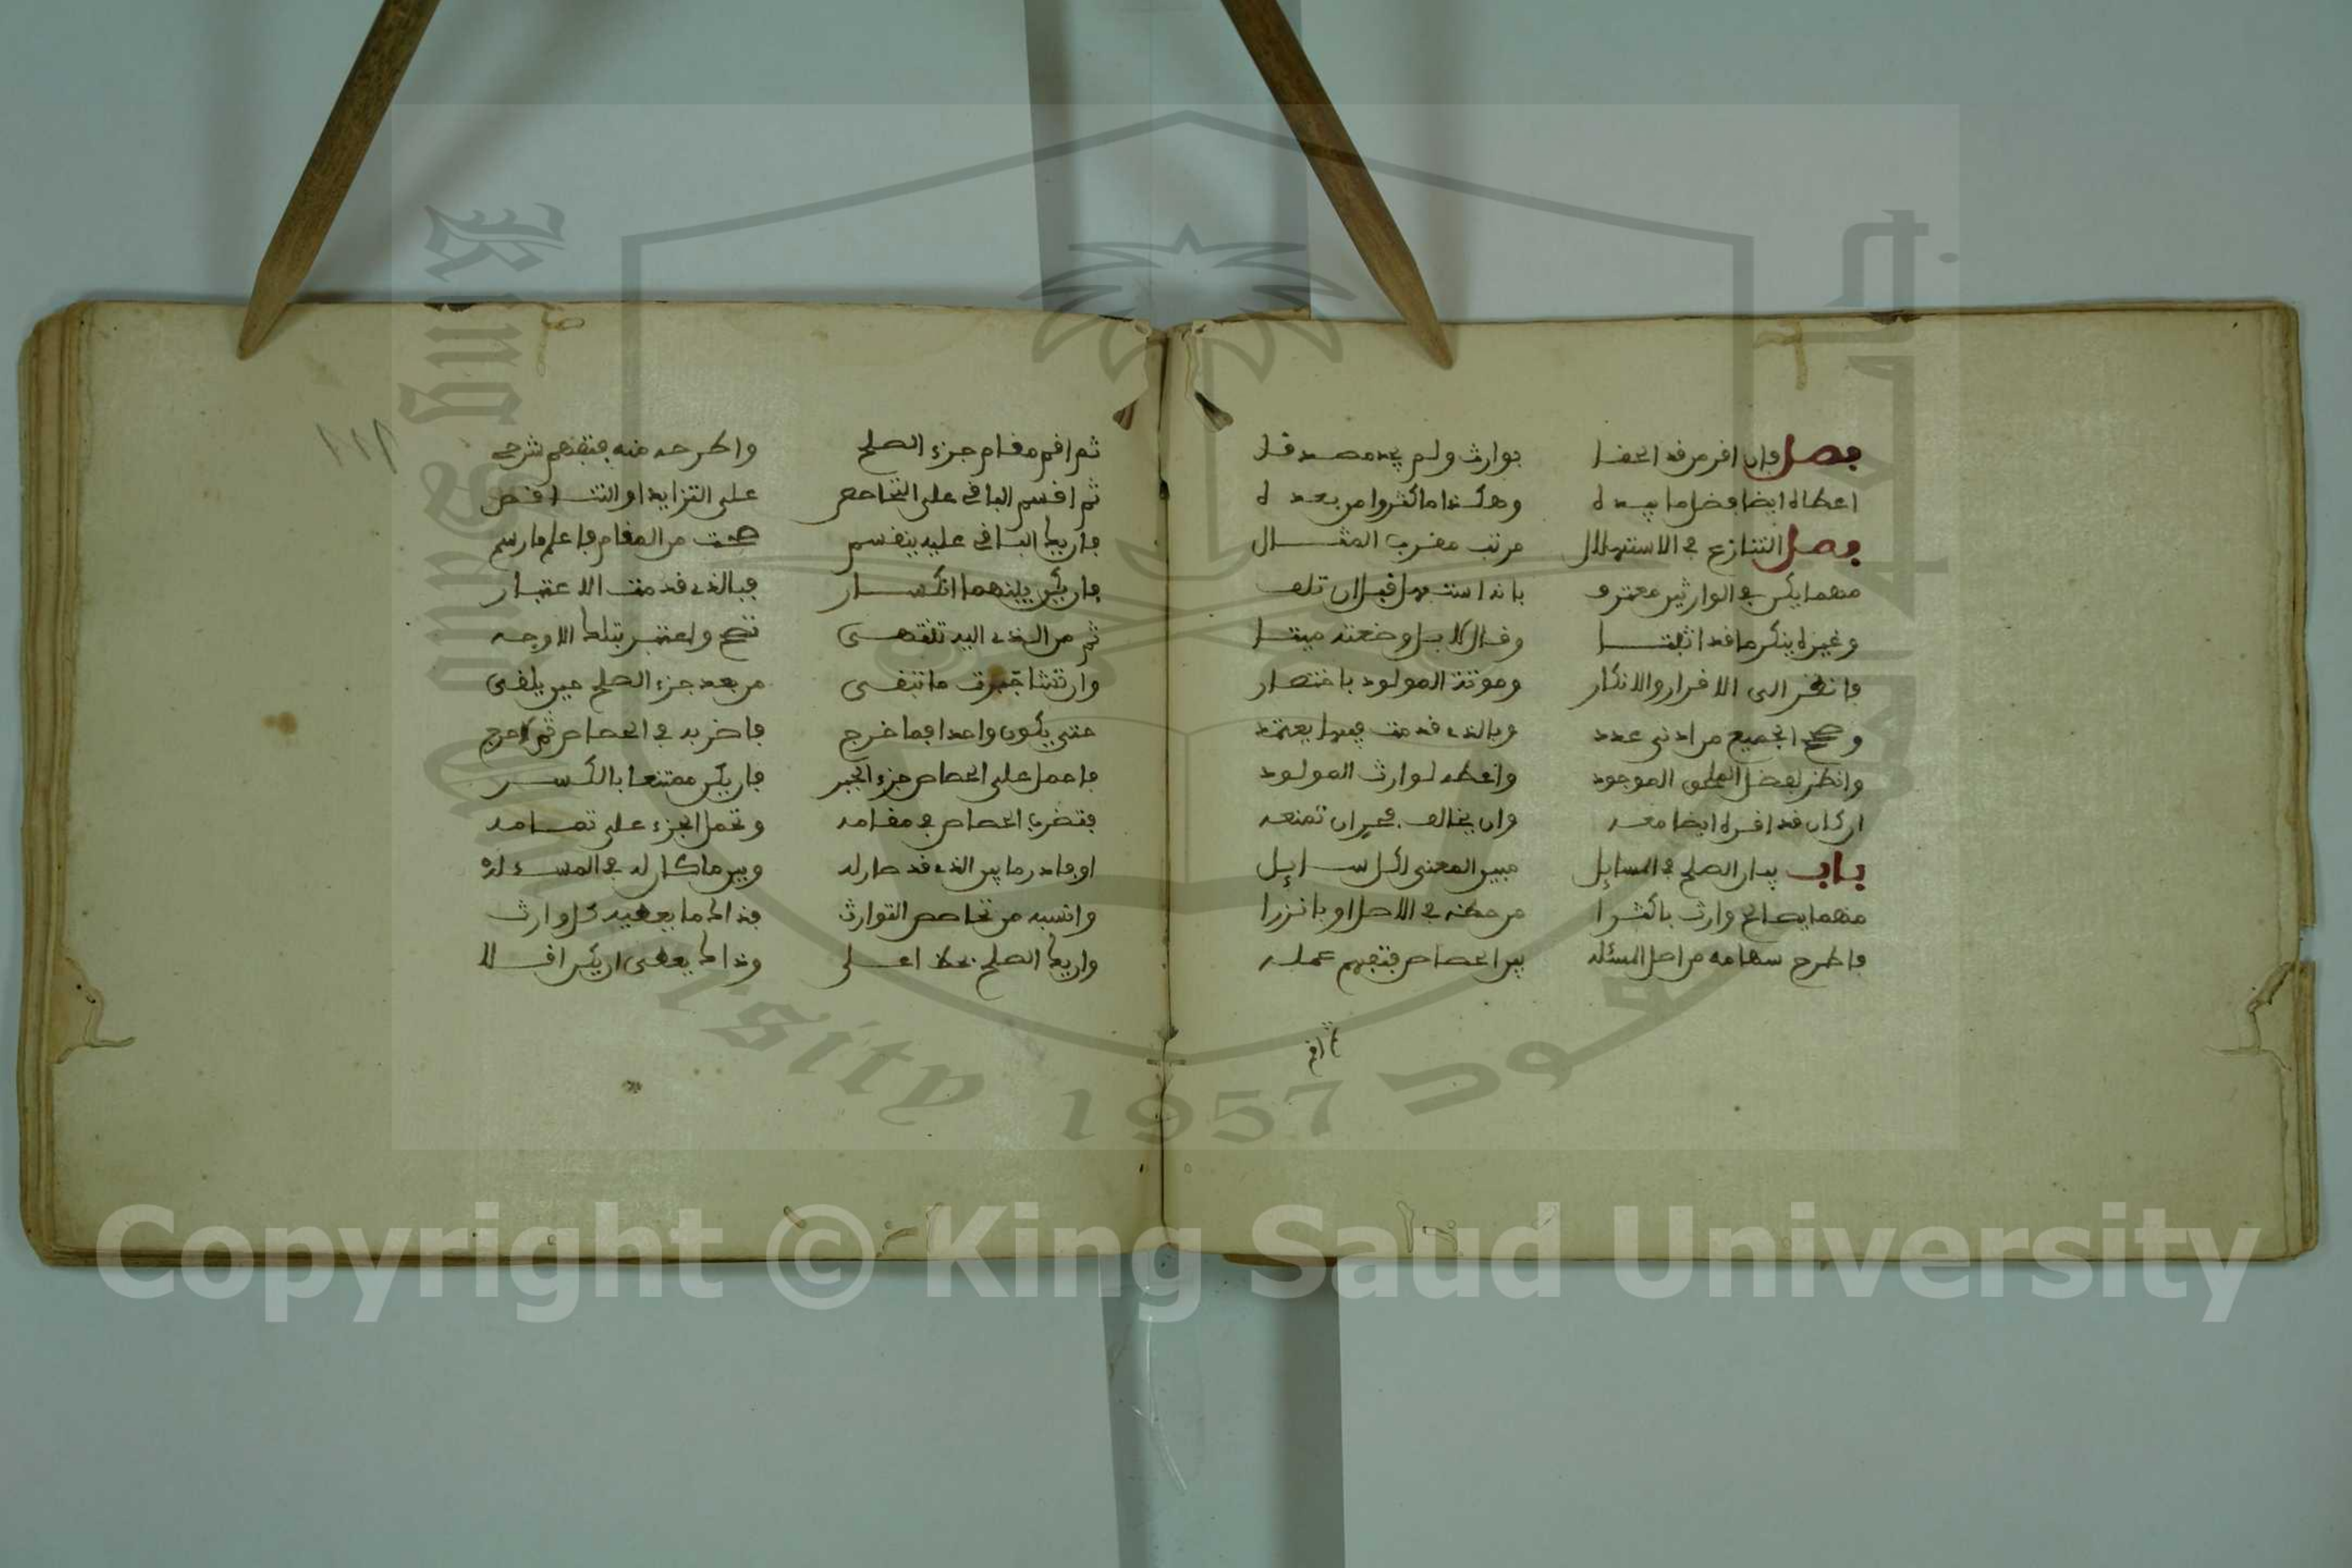 فصل فإن اقر من قد الحفا بوارث ولم يجد مصدقا
اعطاه ايضا فضل ما بيده وهكذا ما كثروا من بعده
فصل التنازع في الاستهلال مرتب مقرب المثال
مهما يكن في الوارثين معترف بانه استهل قبل ان تلف
وغيره ينكر ما قد اثبتا وقال لا بل وضعته ميتا
فانظر الى الاقرار والانكار وموتة المولود باختصار
وصحح الجميع من ادنى عدد وبالذي قدمت فيها يعتمد
وانظر لفضل الموجود واعطه لوارث المولود
ان كان قد اقر له ايضا معه وان يخالف تمنعه
باب بيان الصلح في المسايل مبين المعنى لكل سايل
مهما يصالح وارث باكثرا من حظه في الاصل او بانزرا
فاطرح سهامه من اصل المسئله بين الحصاص فتفهم عمله
ثم اقم
ثم اقم مقام جزء الصلح واطرحه منه فتفهم شرحي
ثم اقسم الباقي على التحاصص على التزايد او التناقص
فان يك الباقي عليه ينقسم صحت من المقام فاعلم ما رسم
فان يكن بينهما انكسار فبالذي قدمت الاعتبار
ثم من الذي اليه تنتهي تصح واعتبر بتلك الاوجه
وان تشا جبرت ما تبقى من بعد جزء الصلح حين يلقى
حتى يكون واحدا فما خرج فاضربه في الحصاص ثم لا حرج
فاحمل على الحصاص جزء الجبر فان يكن ممتنعا بالكسر
فتضرب الحصاص في مقامه وتحمل الجزء على تمامه
او فادر ما بين الذي قد صار له وبين ما كان له في المسئله
وانسبه من تحاصص التوارث فذاك ما يعطيه كل وارث
وان يك الصلح بحظ اعلى وذاك يعطى ان يكن اقلا
١١٨
Copyright © King Saud University
1957